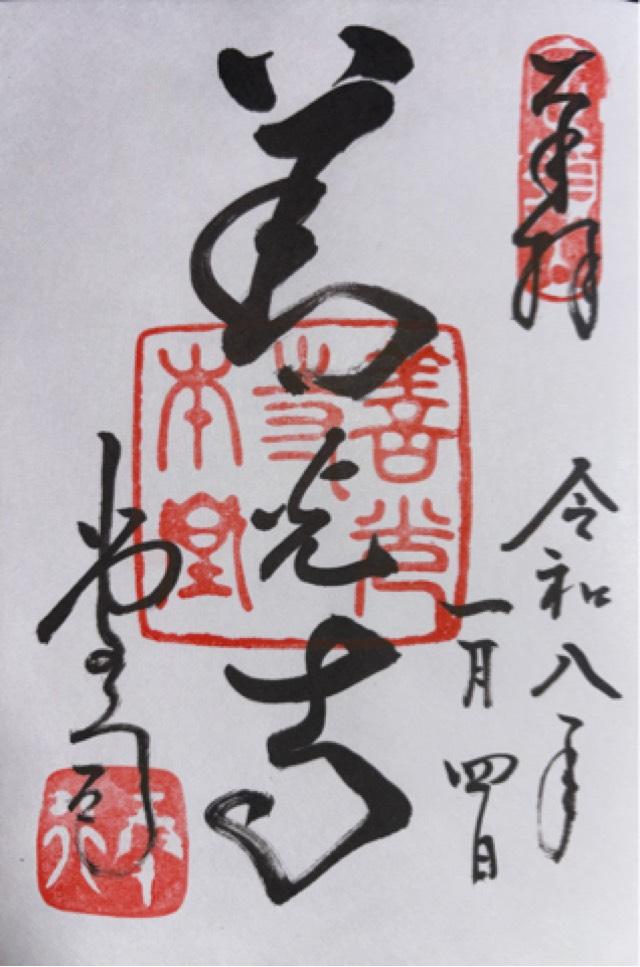 奉拝
令和八年
一月四日
善光寺
堂司
善光
寺
本堂